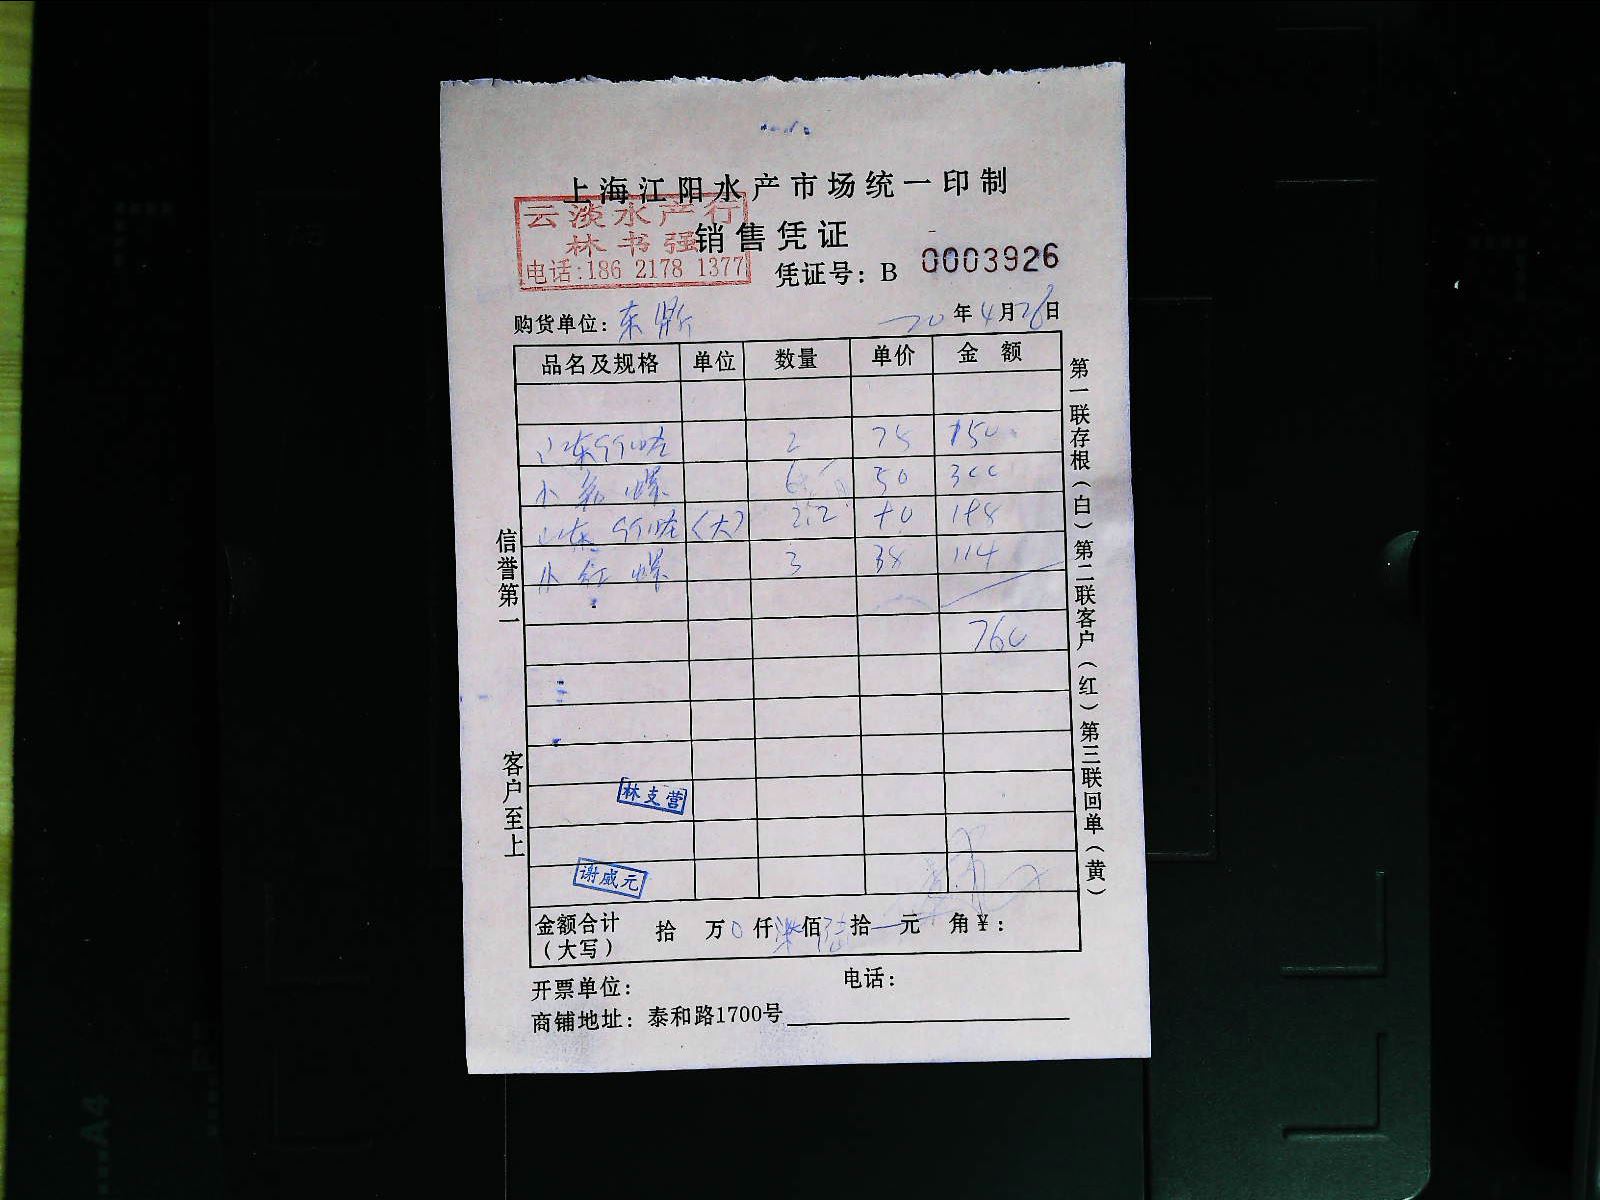 上海江阳水产市场统一印制
云淡水产行
林书强
电话:186 2178 1377
销售凭证
凭证号: B 0003926
购货单位: 东鼎 20年4月26日
品名及规格 单位 数量 单价 金额
山东 2 75 150
小 螺 6 50 300
山东 (大) 2.2
小红螺 3 38 114
760
信誉第一
客户至上
第一联存根(白)第二联客户(红)第三联回单(黄)
林支营
谢威元
金额合计(大写) 拾 万 0 仟 柒 佰 陆 拾 元 角 ¥:
开票单位: 电话:
商铺地址: 泰和路1700号